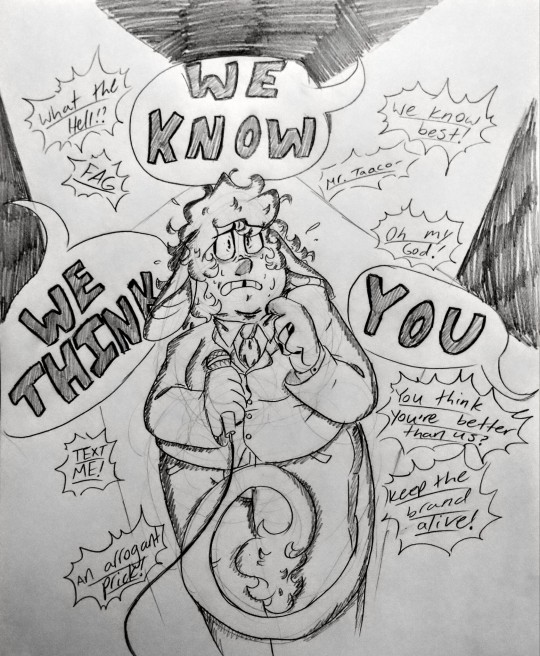 WE
KNOW
What the
Hell!?
FAG
We know
best!
Mr. Taaco-
Oh my
God!
WE
THINK
YOU
You think
you're better
than us?
TEXT
ME!
Keep the
brand
alive!
An arrogant
Prick!